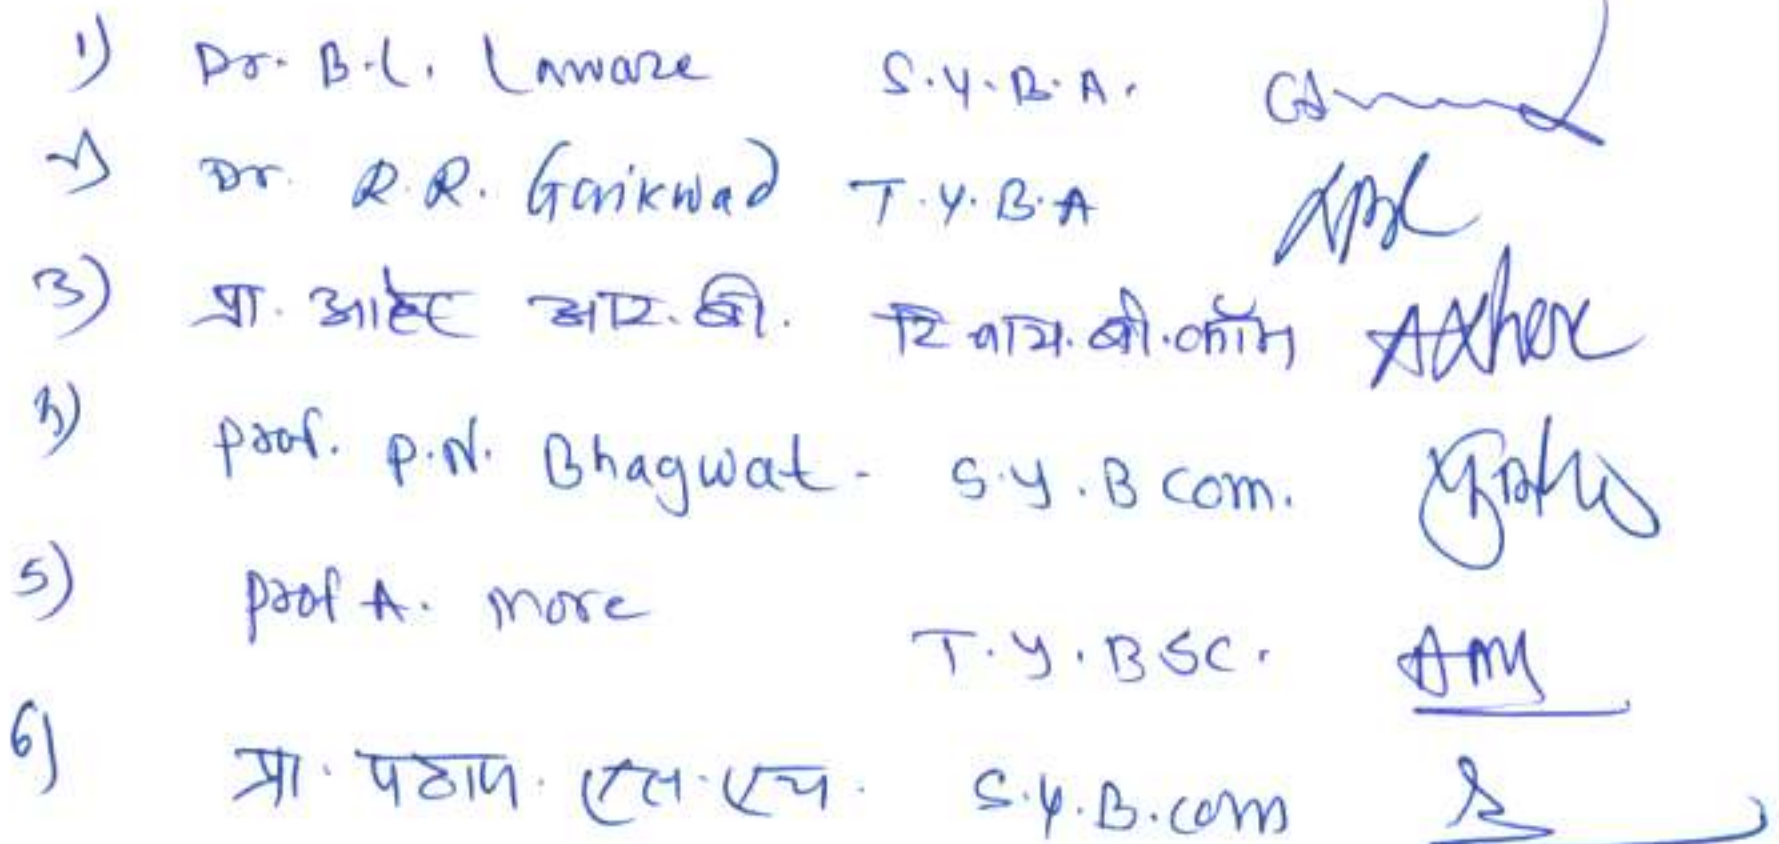 1) Dr. B.L. Laware S.Y.B.A.
2) Dr. R.R. Gaikwad T.Y.B.A
3) प्रा. आहेर आर.बी. टि वाय.बी.कॉम Aher
4) prof. P.N. Bhagwat - S.Y.B com.
5) prof A. more T.Y.BSC.
6) प्रा. पठाण. एल.एच. S.Y.B.com